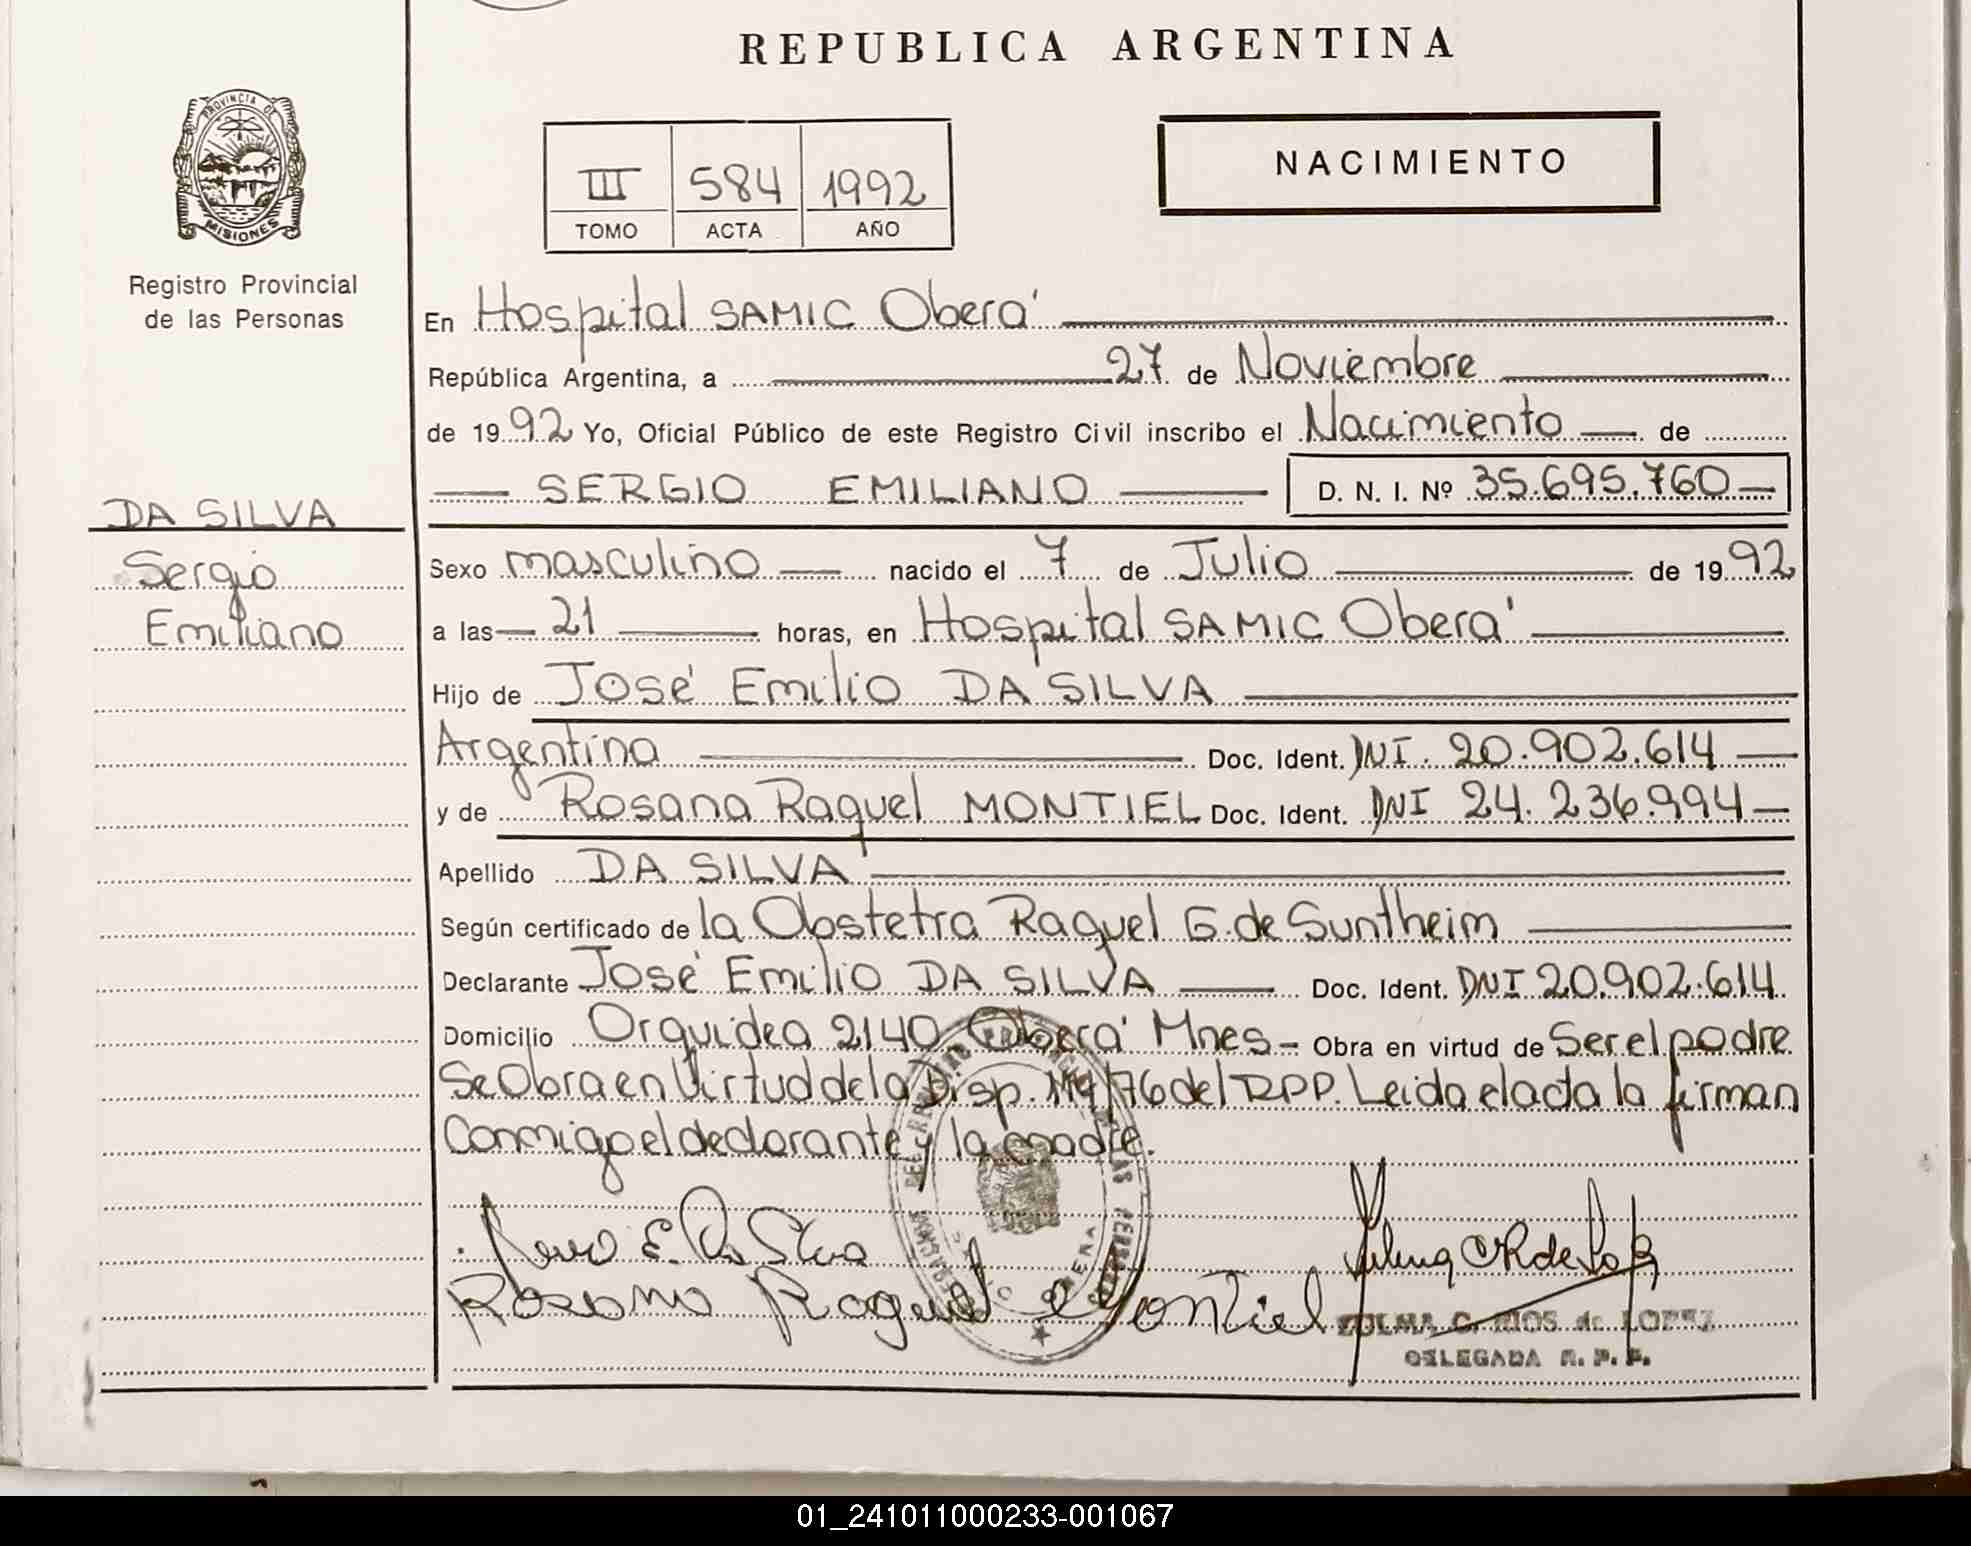 REPUBLICA ARGENTINA
PROVINCIA DE
MISIONES
Registro Provincial
de las Personas
III 584 1992
TOMO ACTA AÑO
NACIMIENTO
En Hospital SAMIC Oberá
República Argentina, a 27 de Noviembre
de 1992 Yo, Oficial Público de este Registro Civil inscribo el Nacimiento de
SERGIO EMILIANO D. N. I. Nº 35.695.760
DA SILVA
Sergio
Emiliano
Sexo masculino nacido el 7 de Julio de 1992
a las 21 horas, en Hospital SAMIC Oberá
Hijo de José Emilio DA SILVA
Argentina Doc. Ident. DNI. 20.902.614
y de Rosana Raquel MONTIEL Doc. Ident. DNI 24.236.994
Apellido DA SILVA
Según certificado de la Obstetra Raquel G. de Suntheim
Declarante José Emilio DA SILVA Doc. Ident. DNI 20.902.614
Domicilio Orquidea 2140 Oberá Mnes- Obra en virtud de Ser el padre
Se Obra en Virtud de la Disp. 119/76 del RPP. Leida el acta la firman
Conmigo el declarante y la madre.
E. Da Silva
Rosana Raquel Montiel
ZULMA C. RIOS de LOPEZ
DELEGADA R. P. P.
01_241011000233-001067